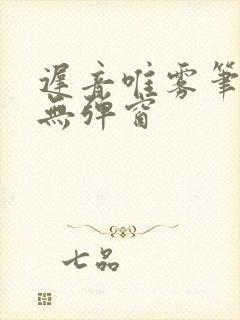 遲音唯雾筆
無彈窗
七品